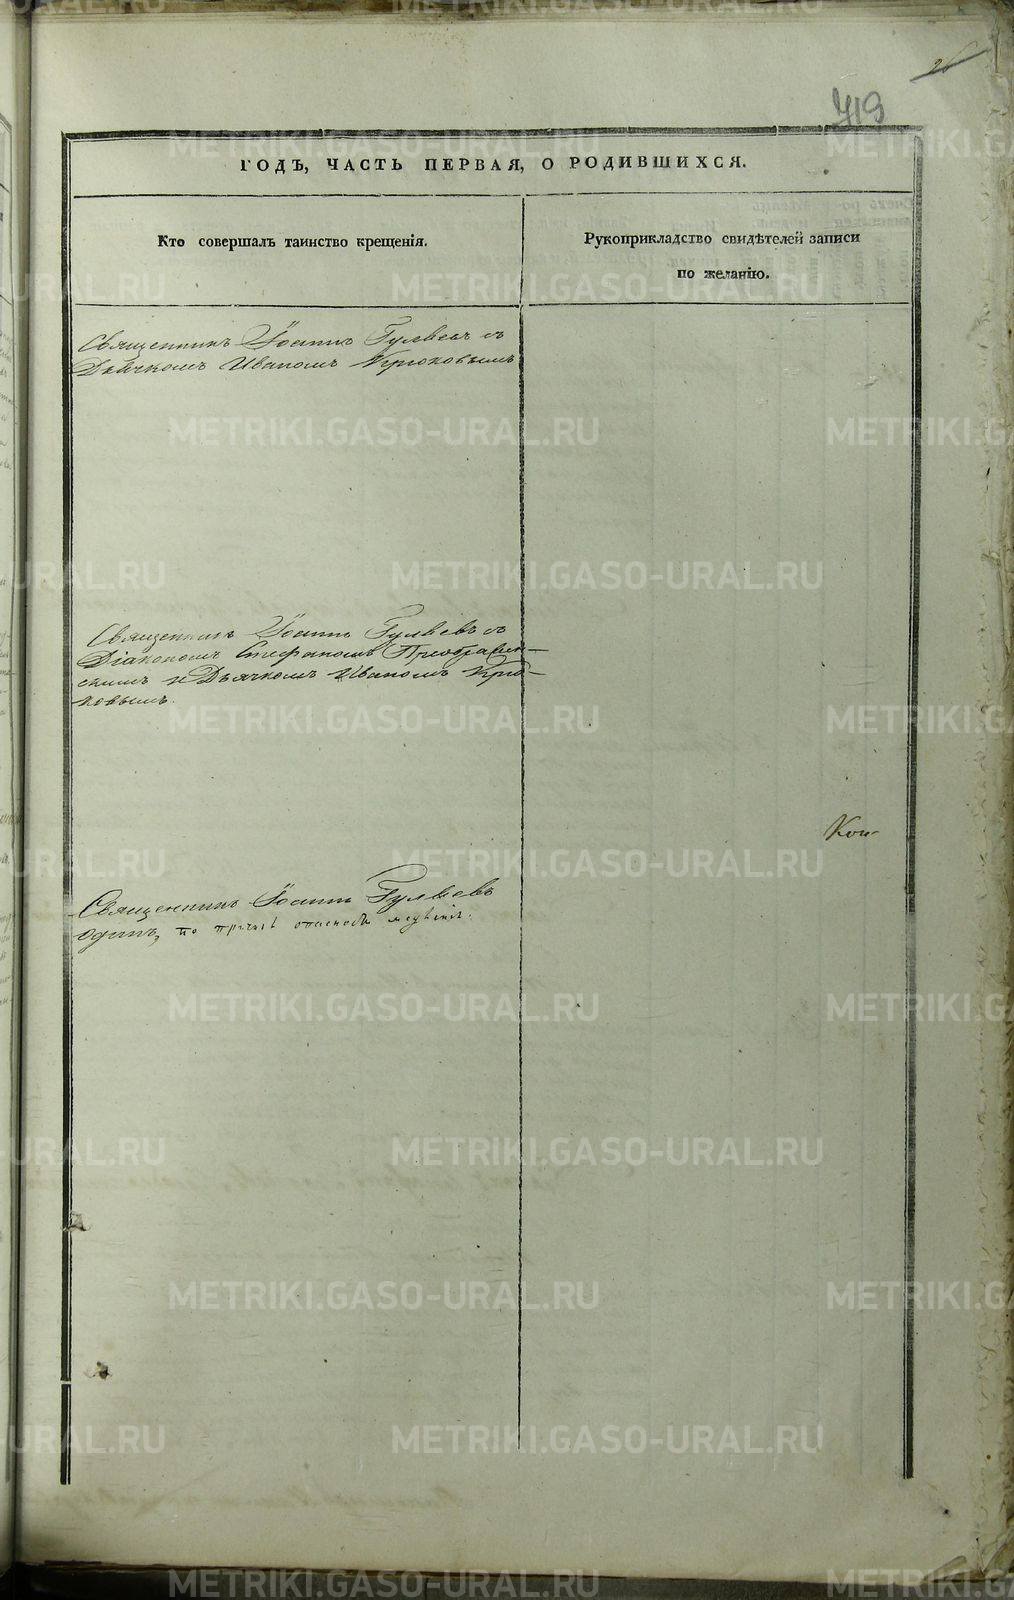 26
419
ГОДЪ, ЧАСТЬ ПЕРВАЯ, О РОДИВШИХСЯ.
Кто совершалъ таинство крещенія.
Рукоприкладство свидѣтелей записи
по желанію.
Священникъ Іоаннъ Гуляевъ съ
Дьячкомъ Иваномъ Крюковымъ
Священникъ Іоаннъ Гуляевъ съ
Діакономъ Стефаномъ Преображен-
скимъ и Дьячкомъ Иваномъ Крю-
ковымъ.
Кон-
Священникъ Іоаннъ Гуляевъ
одинъ, по
METRIKI.GASO-URAL.RU